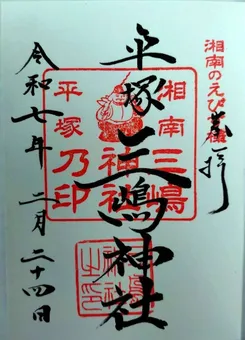 湘南のえびす様
奉拝
平塚
三嶋神社
湘南三嶋
神社
平塚乃印
令和七年 二月 二十四日